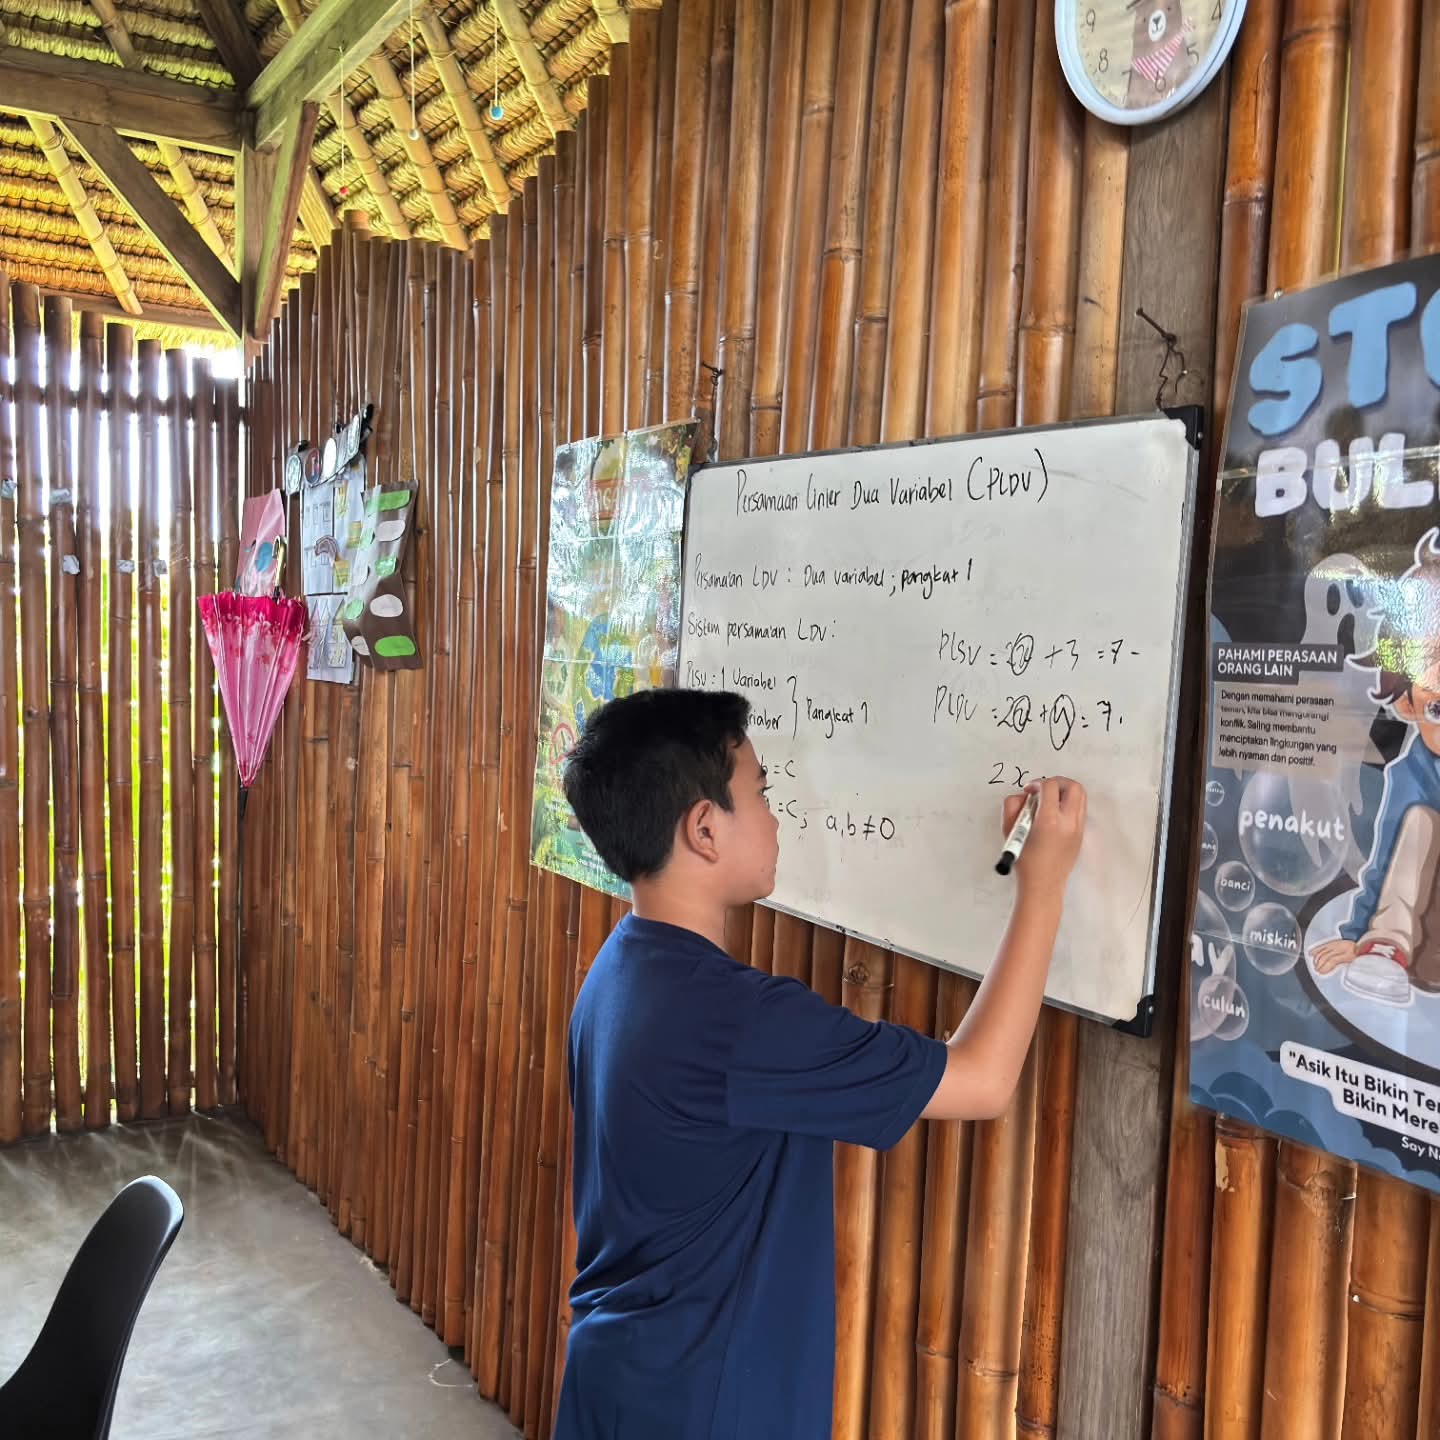 Persamaan Linier Dua Variabel (PLDV)
Persamaan LDV : Dua variabel ; pangkat 1
Sistem persamaan LDV :
PLSV : 1 Variabel
riabel } Pangkat 1
b = c
= c ; a, b ≠ 0
PLSV = 2x + 3 = 7 -
PLDV = 2x + y = 7.
2x
9 8 7 6 5 4
STO
BUL
PAHAMI PERASAAN
ORANG LAIN
Dengan memahami perasaan
teman, kita bisa mengurangi
konflik. Saling membantu
menciptakan lingkungan yang
lebih nyaman dan positif.
penakut
banci
miskin
ay
culun
"Asik Itu Bikin Te
Bikin Mere
Say N